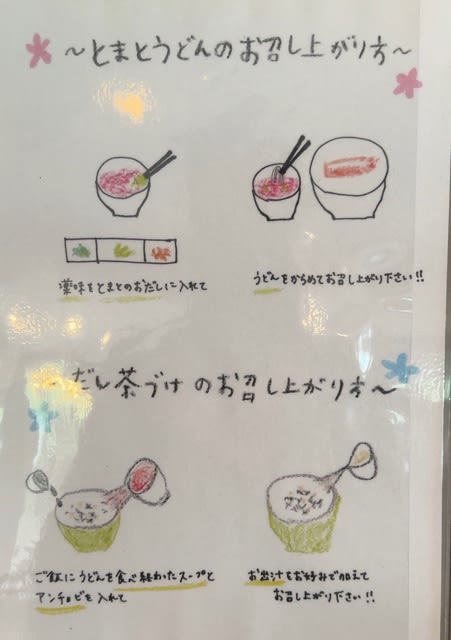 ～とまとうどんのお召し上がり方～
薬味をとまとのおだしに入れて
うどんをからめてお召し上がり下さい!!
～だし茶づけのお召し上がり方～
ご飯にうどんを食べ終わったスープと
アンチョビを入れて
お出汁をお好みで加えて
お召し上がり下さい!!